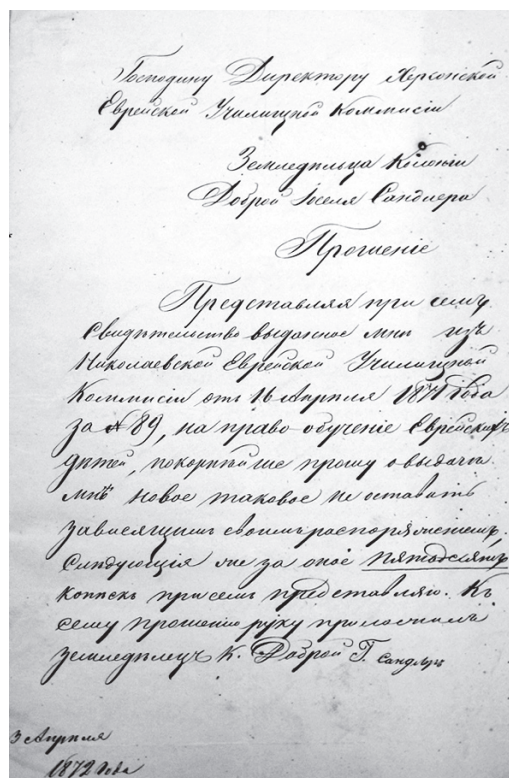 Господину Директору Херсонской
Еврейской Училищной Коммисіи
Земледѣльца Колоніи
Доброй Іоселя Сандлера
Прошеніе
Представляя при семъ
свидѣтельство выданное мнѣ изъ
Николаевской Еврейской Училищной
Коммисіи отъ 16 Апрѣля 1871 года
за № 89, на право обученіе Еврейскихъ
дѣтей, покорнѣйше прошу о выдачи
мнѣ новое таковое не оставить
зависящимъ своимъ распоряженіемъ.
Слѣдующія же за оное пятьдесятъ
копѣекъ при семъ представляю. Къ
сему прошенію руку приложилъ
земледѣлецъ К. Доброй Г. Сандлеръ
3 Апрѣля
1872 Года